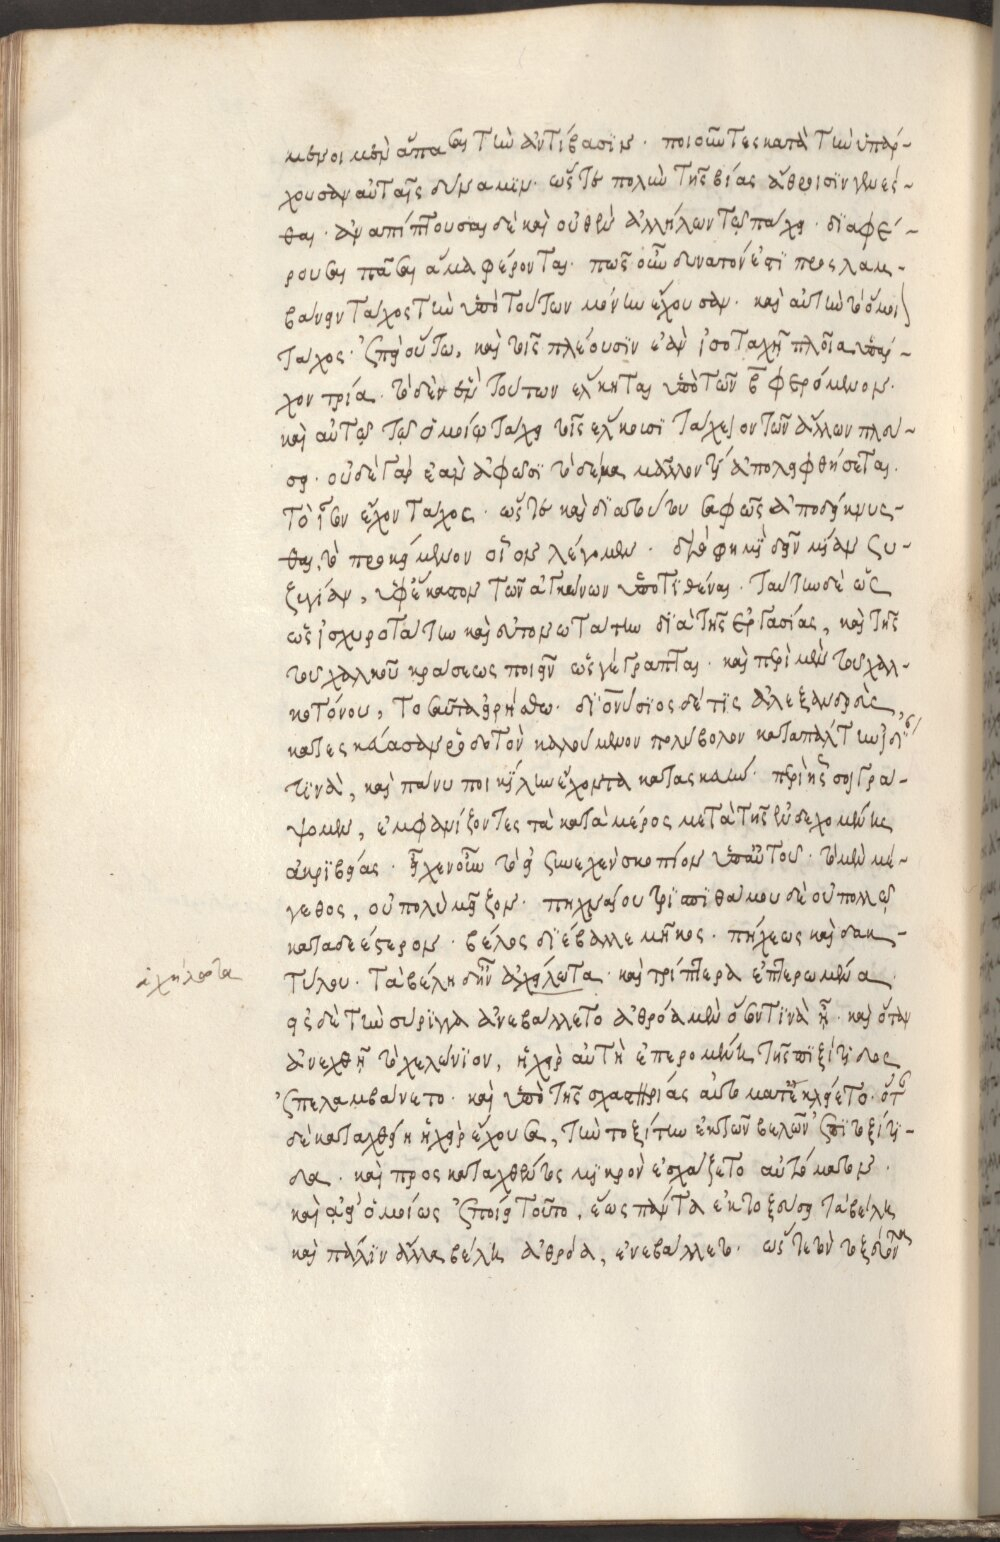 μενοι μὲν ἅπασαι τὴν ἀντίβασιν · ποιοῦντες κατὰ τὴν ὑπάρ-
χουσαν αὐταῖς δύναμιν · ὥστε πολὺν τῆς βίας ἄθροισιν γίνες-
θαι · ἀναπίπτουσαι δὲ καὶ οὐθὲν ἀλλήλων τῷ τάχει · διαφέ-
ρουσαι πᾶσαι ἅμα φέρονται · πῶς οὖν δυνατόν ἐστι προσλαμ-
βάνειν τάχος τὴν ὑπὸ τούτων μόνην ἔχουσαν · καὶ αὐτὴν τὸ ὅμοι
τάχος · ἐπεὶ οὕτω, καὶ τοῖς πλέουσιν ἐὰν ἰσοταχῆ πλοῖα ὑπάρ-
χον τρία · τὸ δὲ ἓν τούτων ἕλκηται ὑπὸ τῶν β φερόμενον ·
καὶ αὐτὸ τῷ ὁμοίῳ τάχει τοῖς ἕλκουσι τάχειον τῶν ἄλλων πλου-
σει · οὐδὲ γὰρ ἐὰν ἀφῶσι οὐδένα μᾶλλον τι ἀπολειφθήσεται ·
τὸ ἴσον ἔχον τάχος · ὥστε καὶ διὰ τούτου σαφῶς ἀποδείκνυς-
θαι, τὸ προκείμενον οἷον λέγομεν · διό φημι δεῖν μίαν ζυ-
ξεγίαν, ὑφ' ἕκαστον τῶν ἀγκώνων ὑποτιθέναι · ταύτην δὲ ὡς
ὡς ἰσχυροτάτην καὶ εὐτονωτάτην διὰ τῆς ἐργασίας, καὶ τῆς
τοῦ χαλκοῦ κράσεως ποιεῖν ὡς γέγραπται · καὶ περὶ μὲν τοῦ χαλ-
κοτόνου, τοσαῦτα εἰρήσθω · διονύσιος δέ τις ἀλεξανδρεὺς,
κατεσκεύασαν ῥόδοτον καλούμενον πολύβολον καταπάλτην ἰδί
τινὰ, καὶ πάνυ ποικίλην ἔχοντα κατασκευήν · περὶ ἧς σοι γρά-
ψομεν, ἐμφανίζοντες τὰ κατὰ μέρος μετὰ τῆς ἐνδεχομένης
ἀκριβείας · ἦχεν οὖν τὸ ει ζωεχεν σκοπίον ὑπ' αὐτοῦ · τὸ μὲν μέ-
γεθος, οὐ πολὺ μεῖζον · πηχυαίου τρισπιθάμου δὲ οὐ πολλῷ
καταδεέστερον · βέλος δὲ ἔβαλλε μῆκος · πήχεως καὶ δακ-
τύλου · τὰ βέλη δ' ἦν ἀχήλωτα · καὶ τρίπτερα ἐπτερωμένα
εἰς δὲ τὴν σύριγγα ἀνεβάλλετο ἀθρόα μὲν ὅσα ντινὰ ἦ · καὶ ὅταν
ἀνεχθῇ τὸ χελώνιον, ἡ χεὶρ αὐτὴ ἐπερομένης τῆς τοξίτιδος
ἐπελαμβάνετο · καὶ ὑπὸ τῆς σχαστηρίας αὐτόματ' ἐκλείετο · ὅτε
δὲ καταχθείη ἡ χεὶρ ἔχουσα, τὴν τοξίτιν ἐκ τῶν βελῶν ἐπὶ τοξίτι-
δα · καὶ προσκαταχθέντος μικρὸν ἐσχάζετο αὐτόματον ·
καὶ ἀεὶ ὁμοίως ἐποίει τοῦτο, ἕως πάντα ἐκτοξεύσει τὰ βέλη
καὶ πάλιν ἄλλα βέλη ἀθρόα, ἐνεβάλλετο · ὥστε τὸν τοξεύοντα
ἀχήλωτα